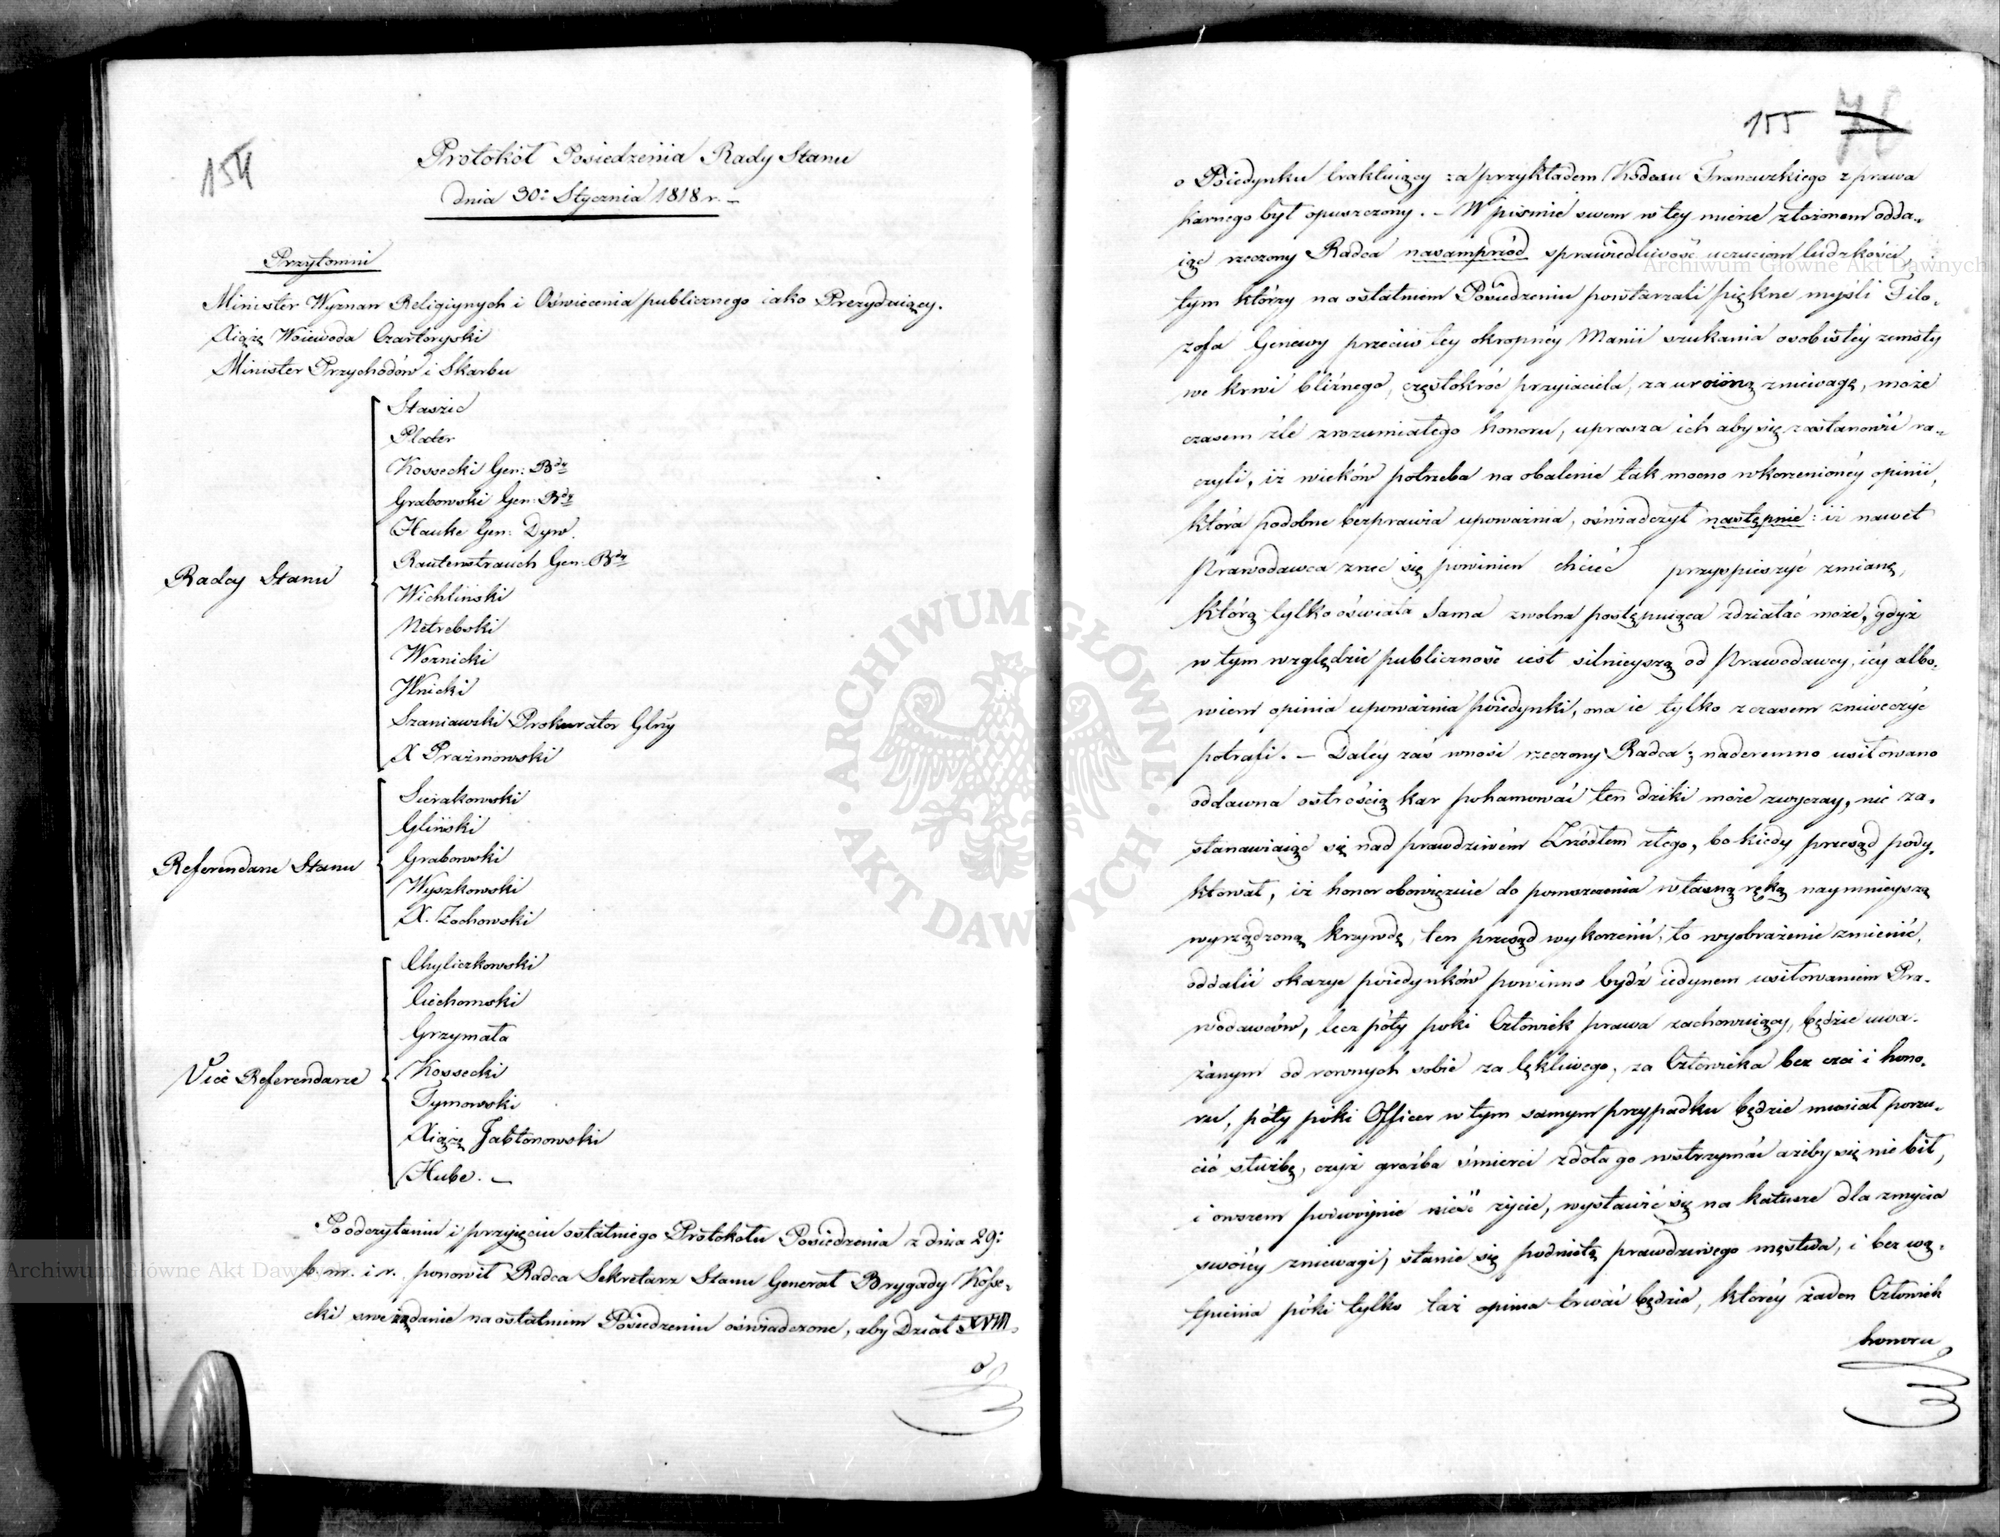 154
Protokół Posiedzenia Rady Stanu
dnia 30: Stycznia 1818 r. –
Przytomni
Minister Wyznań Religiynych i Oświecenia publicznego iako Prezyduiący.
Xiążę Woiewoda Czartoryski
Minister Przychodów i Skarbu
Radcy Stanu
Staszic
Plater
Kossecki Gen: Bdy
Grabowski Gen: Bdy
Hauke Gen: Dyw.
Rautenstrauch Gen: Bdy
Wichliński
Netrebski
Woznicki
Wnicki
Szaniawski Prokurator Glny
X Prażmowski
Referendarze Stanu
Sierakowski
Gliński
Grabowski
Wyszkowski
X. Zochowski
Vice Referendarze
Chyliczkowski
Ciechomski
Grzymała
Kossecki
Tymowski
Xiążę Jabłonowski
Hube. –
Po odczytaniu i przyięciu ostatniego Protokołu Posiedzenia z dnia 29:
b. m. i r. ponowił Radca Sekretarz Stanu Generał Brygady Kosse-
cki swe żądanie na ostatniem Posiedzeniu oświadczone, aby Dział XVIII.
o
155
o Poiedynku traktuiący za przykładem Kodexu Francuzkiego z prawa
karnego był opuszczony. – W piśmie swem w tey mierze złożonem odda-
iąc rzeczony Radca nasamprzód sprawiedliwość uczuciom ludzkości,
tym którzy na ostatniem Posiedzeniu powtarzali piękne myśli Filo-
zofa Genewy przeciw tey okropnéy Manii szukania osobistéy zemsty
we krwi bliźnego, częstokroć przyiaciela, za uroioną zniewagę, może
czasem źle zrozumiałego honoru, uprasza ich aby się zastanowić ra-
czyli, iż wieków potrzeba na obalenie tak mocno wkorzenionéy opinii,
która podobne bezprawia upoważnia, oświadczył następnie: iż nawet
Prawodawca zrzec się powinien chcieć przyspieszyć zmianę,
którą tylko oświata sama zwolna postępuiąca zdziałać może, gdyż
w tym względzie publiczność iest silnieyszą od Prawodawcy, iéy albo-
wiem opinia upoważnia poiedynki, ona ie tylko z czasem zniweczyć
potrafi. – Daléy zaś wnosi rzeczony Radca; nadaremno usiłowano
oddawna ostrością kar pohamować ten dziki może zwyczay, nie za-
stanawiaiąc się nad prawdziwém Źródłem złego, bo kiedy przesąd pody-
ktował, iż honor obowięzuie do pomszczenia własną ręką naymnieyszą
wyrządzoną krzywdę, ten przesąd wykorzenić, to wyobrażenie zmienić,
oddalić okazye poiedynków powinno bydź iedynem usiłowaniem Pra-
wodawców, lecz póty poki Człowiek prawa zachowuiący, będzie uwa-
żanym od rownych sobie za lękliwego, za Człowieka bez czci i hono-
ru, póty póki Officer w tym samym przypadku będzie musiał porzu-
cić służbę, czyż groźba śmierci zdoła go wstrzymać ażeby się nie bił,
i owszem poświęcić życie, wystawić się na katusze dla zmycia
swoiéy zniewagi, stanie się podnietą prawdziwego męstwa, i bez wą-
tpienia póki tylko taż opinia trwać będzie, któréy żaden Człowiek
honoru